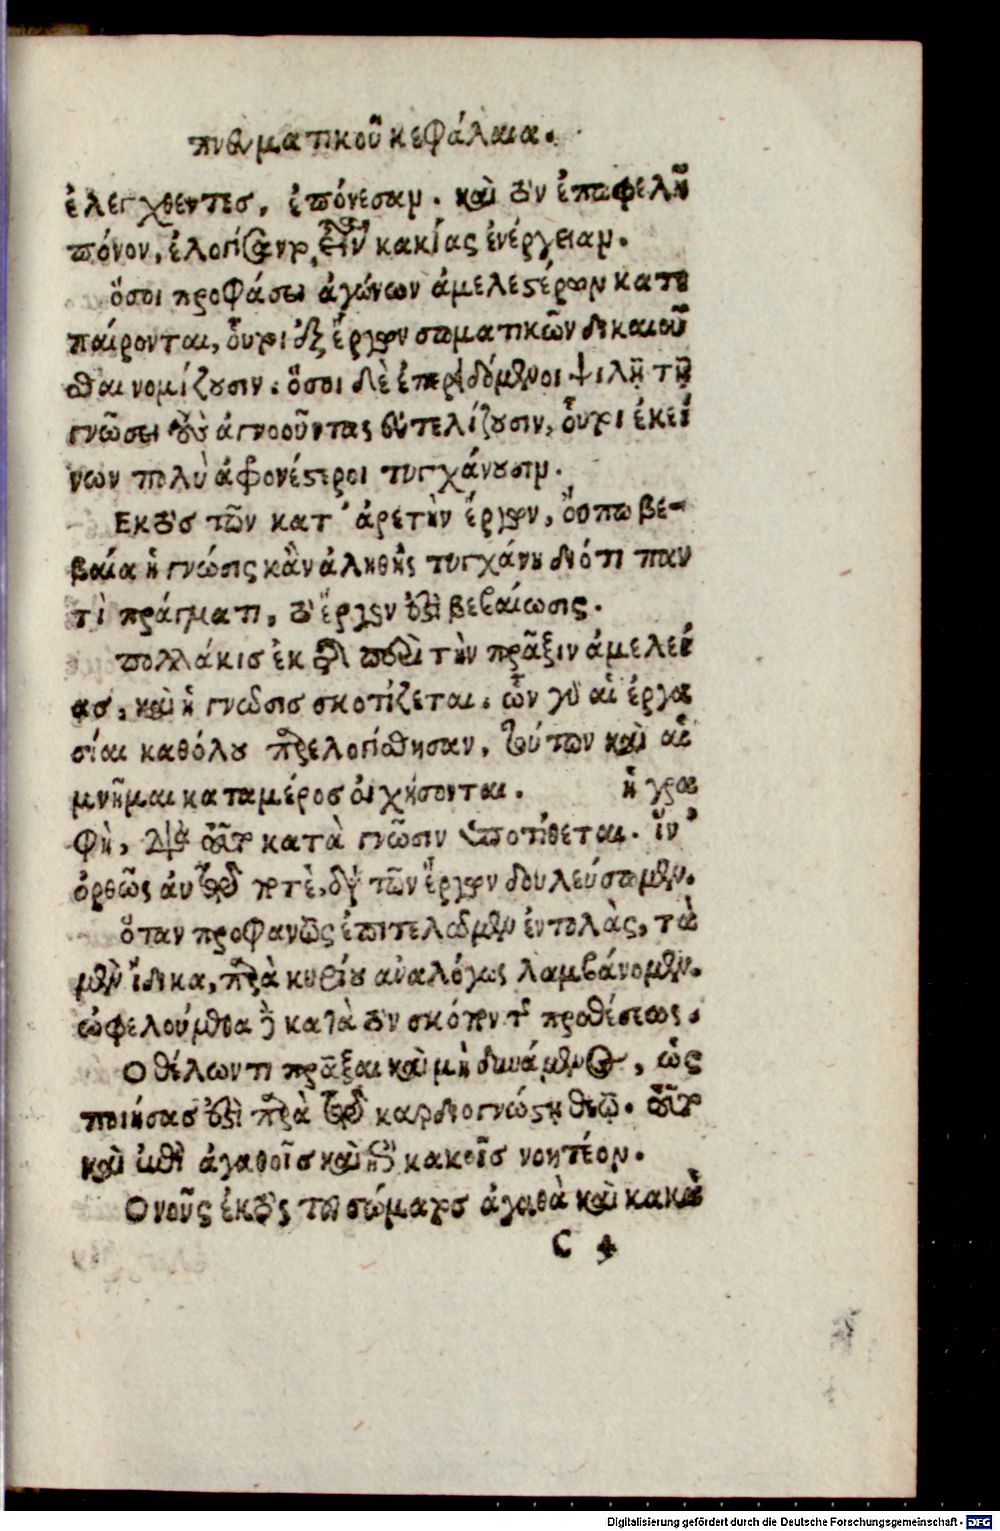 πνευματικοῦ κεφάλαια.
ἐλεγχθεντες, ἐπόνεσαν. καὶ τὸν ἐπωφελῆ
πόνον, ἐλογίσαντο τὴν κακίας ἐνέργειαν.
ὅσοι προφάσει ἀγώνων ἀμελεστέρων κατε
παίρονται, οὗτοι ἐξ ἔργων σωματικῶν δικαιοῦ
σθαι νομίζουσιν. ὅσοι δὲ ἐπερειδόμενοι ψιλῇ τῇ
γνώσει τοὺς ἀγνοοῦντας εὐτελίζουσιν, οὗτοι ἐκεί
νων πολὺ ἀφρονέστεροι τυγχάνουσιν.
Εκτὸς τῶν κατ' ἀρετὴν ἔργων, οὔπω βε-
βαία ἡ γνώσις κἂν ἀληθὴς τυγχάνῃ διότι παν
τὶ πράγματι, τὸ ἔργον ἐστὶ βεβαίωσις.
πολλάκις ἐκ τῆς περὶ τὴν πρᾶξιν ἀμελεί
ας, καὶ ἡ γνῶσις σκοτίζεται. ὧν γὰρ αἱ ἐργα
σίαι καθόλου παρελογίσθησαν, τούτων καὶ αἱ
μνῆμαι καταμέρος οἰχήσονται. ἡ γρα
φὴ, διὰ τοῦτο κατὰ γνῶσιν ὑποτίθεται. ἵν'
ὀρθῶς αὐτῷ τότε, διὰ τῶν ἔργων δουλεύσωμεν.
ὅταν προφανῶς ἐπιτελῶμεν ἐντολὰς, τὰ
μὲν ἴδια, παρὰ κυρίου ἀναλόγως λαμβάνομεν.
ὠφελούμεθα δὲ κατὰ τὸν σκόπον τῆς προθέσεως.
Ο θέλων τι πρᾶξαι καὶ μὴ δυνάμενος, ὡς
ποιήσας ἐστὶ παρὰ τῷ καρδιογνώστῃ θεῷ. τοῦτο
καὶ ἐπὶ ἀγαθοῖς καὶ ἐπὶ κακοῖς νοητέον.
Ο νοῦς ἐκτὸς τοῦ σώματος ἀγαθὰ καὶ κακὰ
C 4
Digitalisierung gefördert durch die Deutsche Forschungsgemeinschaft - DFG